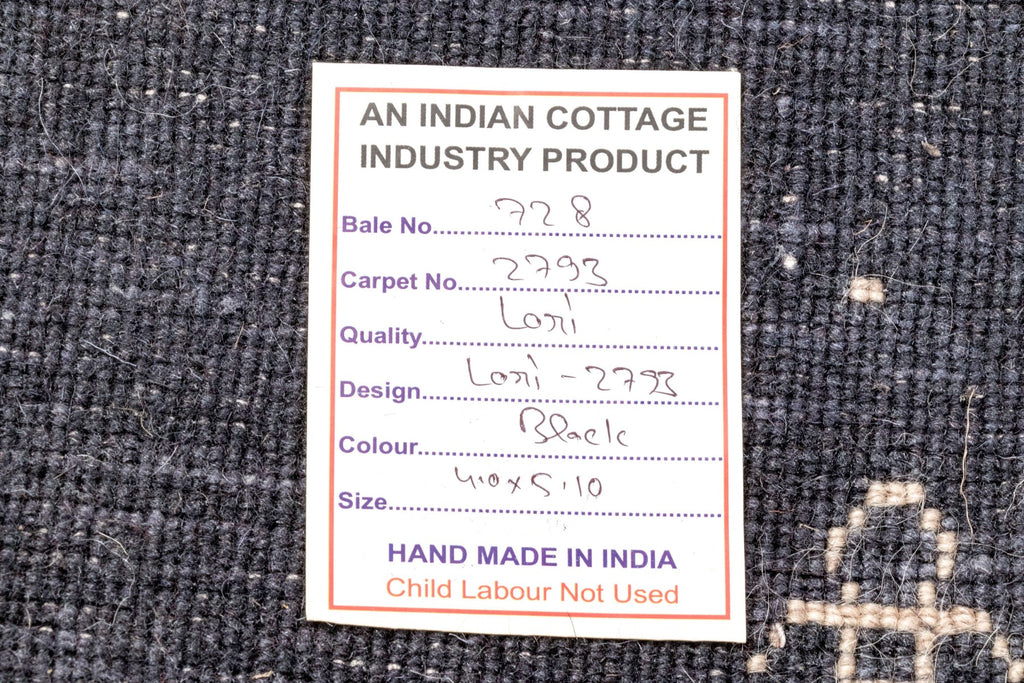 AN INDIAN COTTAGE
INDUSTRY PRODUCT
Bale No. 728
Carpet No. 2793
Quality Lori
Design Lori - 2793
Colour Black
Size 4.0 x 5.10
HAND MADE IN INDIA
Child Labour Not Used